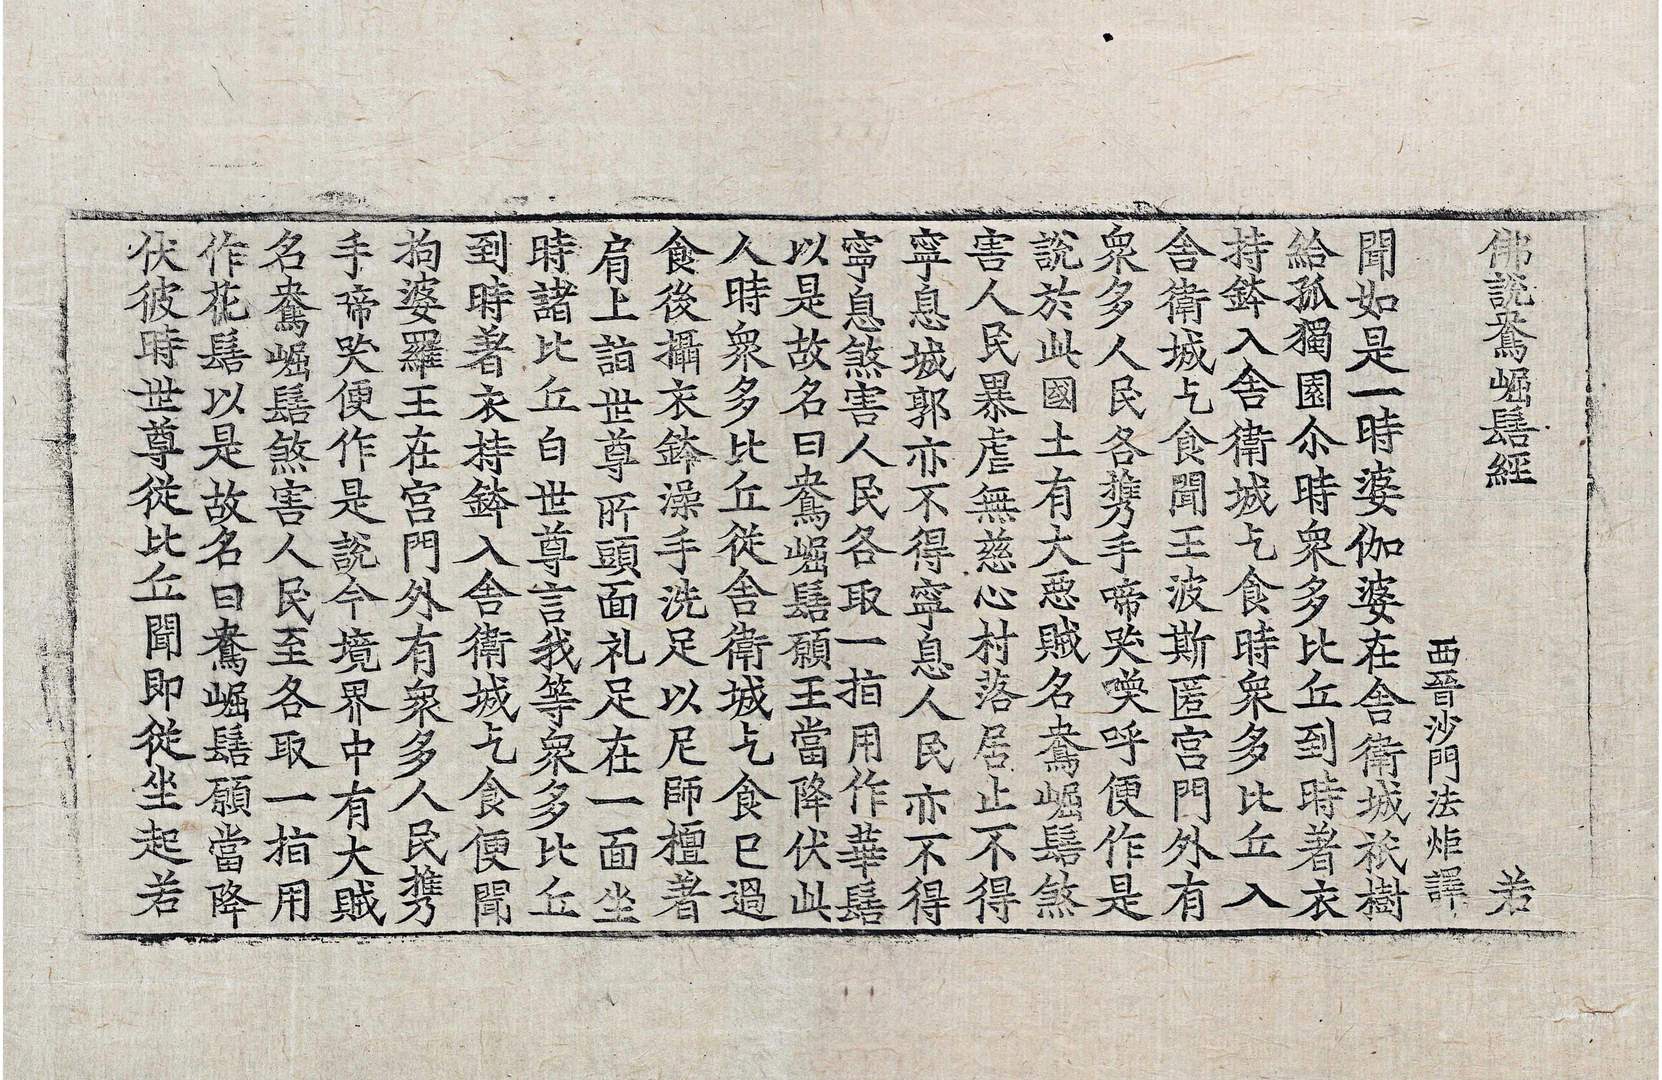 佛說鴦崛髻經 若
西晉沙門法炬譯
聞如是一時婆伽婆在舍衛城祇樹
給孤獨園尒時衆多比丘到時著衣
持鉢入舍衛城乞食時衆多比丘入
舍衛城乞食聞王波斯匿宮門外有
衆多人民各攜手啼哭喚呼便作是
說於此國土有大惡賊名鴦崛髻煞
害人民暴虐無慈心村落居止不得
寧息城郭亦不得寧息人民亦不得
寧息煞害人民各取一指用作華鬘
以是故名曰鴦崛髻願王當降伏此
人時衆多比丘從舍衛城乞食已過
食後攝衣鉢澡手洗足以尼師檀著
肩上詣世尊所頭面礼足在一面坐
時諸比丘白世尊言我等衆多比丘
到時著衣持鉢入舍衛城乞食便聞
拘婆羅王在宮門外有衆多人民攜
手啼哭便作是說今境界中有大賊
名鴦崛髻煞害人民至各取一指用
作花鬘以是故名曰鴦崛髻願當降
伏彼時世尊從比丘聞即從坐起若